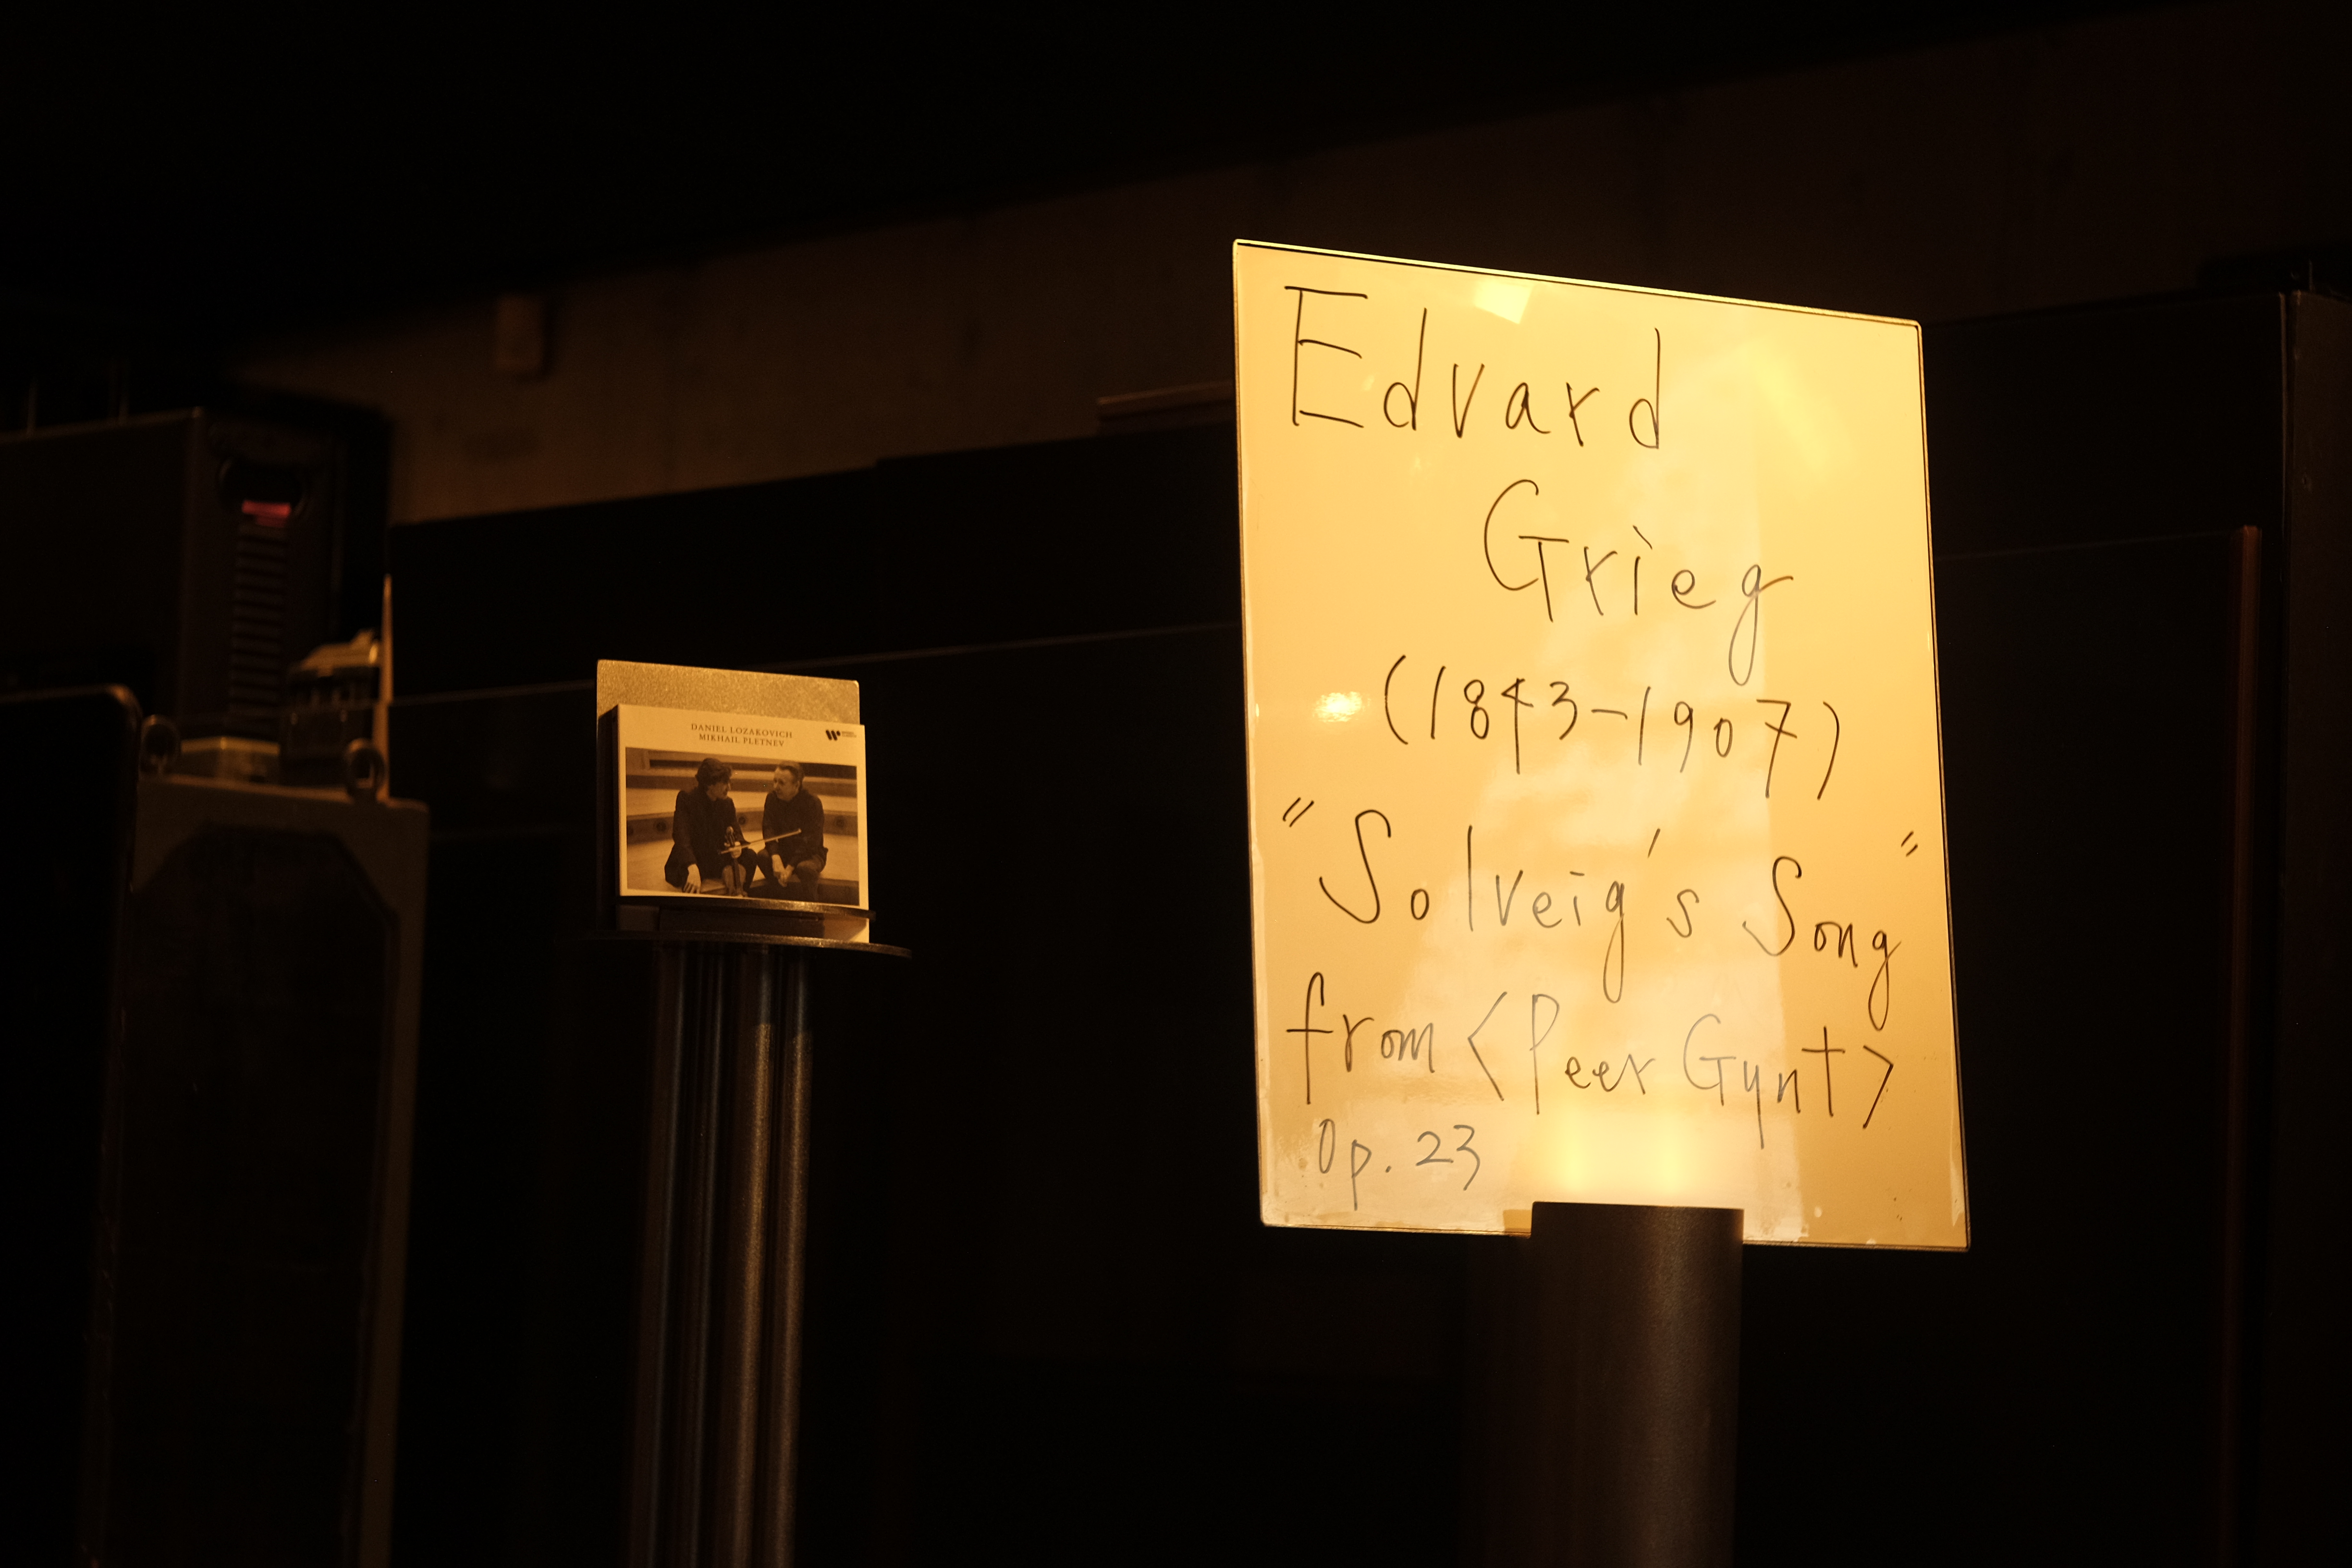 DANIEL LOZAKOVICH
MIKHAIL PLETNEV
Edvard
Grieg
(1843-1907)
"Solveig's Song"
from <Peer Gynt>
Op. 23